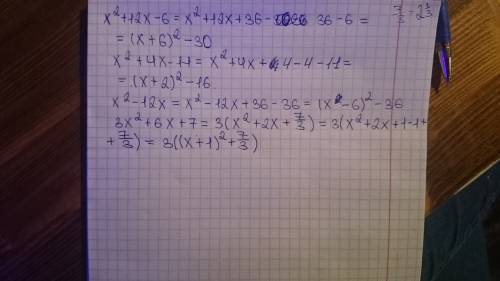 x²+12x-6 = x²+12x+36- 36-6 =
= (x+6)²-30
x²+4x-11 = x²+4x+4-4-11=
= (x+2)²-16
x²-12x = x²-12x+36-36 = (x-6)²-36
3x²+6x+7 = 3(x²+2x+7/3) = 3(x²+2x+1-1+
+7/3) = 3((x+1)²+7/3)